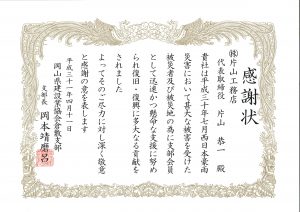 感謝状
㈱片山工務店
代表取締役 片山 恭一 殿
貴社は平成三十年七月西日本豪雨
災害において甚大な被害を受けた
被災者及び被災地の為に支部会員
として迅速かつ懸命な支援に努め
られ復旧・復興に多大なる貢献を
されました
よってそのご尽力に対し深く敬意
と感謝の意を表します
平成三十一年四月十一日
岡山県建設業協会倉敷支部
支部長 岡本靖磨呂